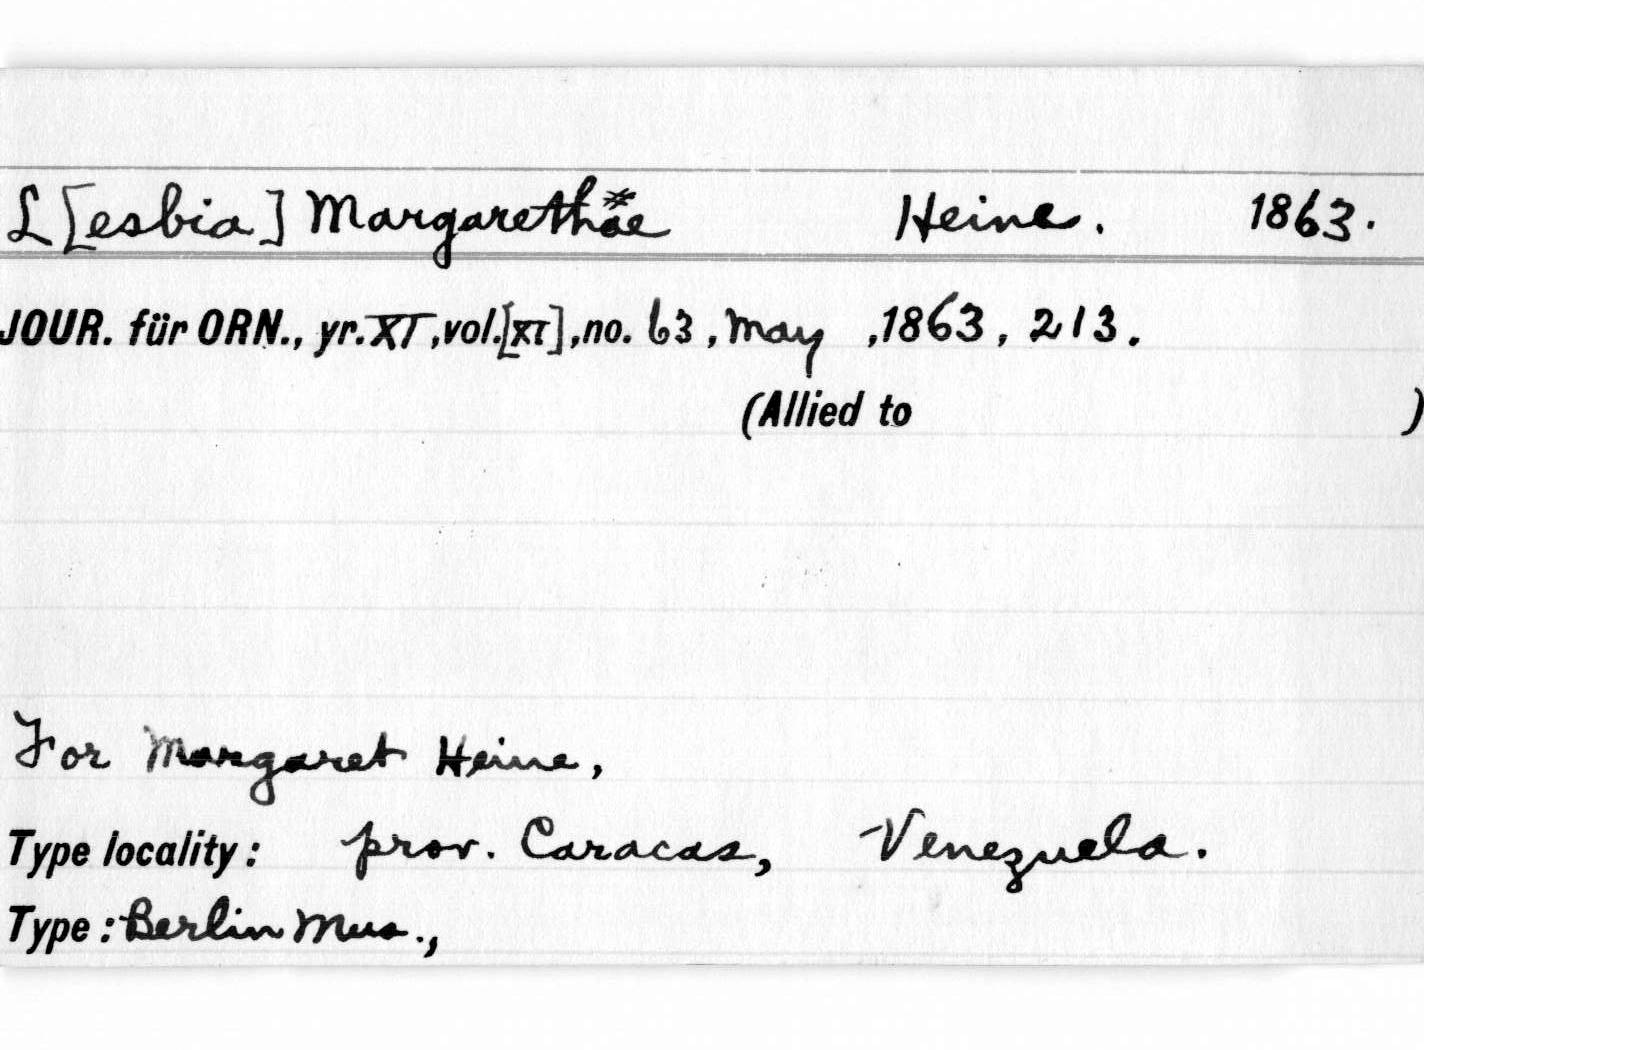 L[esbia] Margarethae* Heine. 1863.
JOUR. für ORN., yr. XI, vol. [XI], no. 63, May, 1863, 213.
(Allied to )
For Margaret Heine,
Type locality: prov. Caracas, Venezuela.
Type: Berlin Mus.,